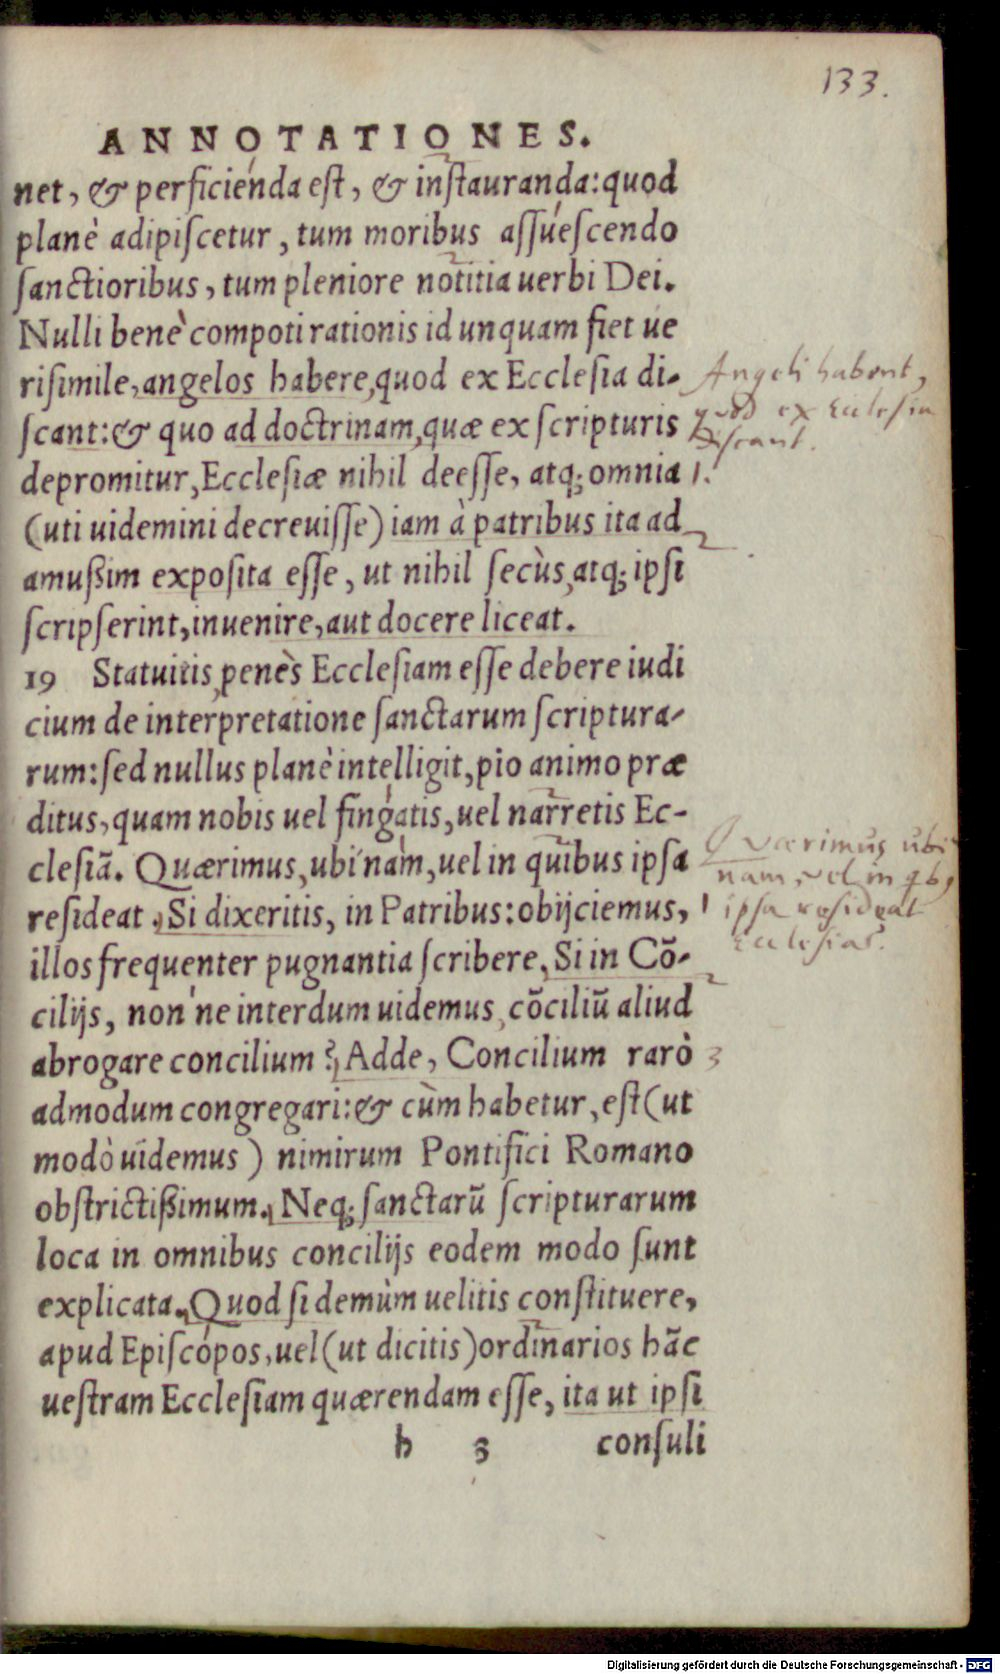 133.
ANNOTATIONES.
net, & perficienda est, & instauranda: quod
planè adipiscetur, tum moribus assuescendo
sanctioribus, tum pleniore notitia uerbi Dei.
Nulli benè compoti rationis id unquam fiet ue
risimile, angelos habere, quod ex Ecclesia di-
scant: & quo ad doctrinam, quæ ex scripturis
depromitur, Ecclesiæ nihil deesse, atq; omnia
(uti uidemini decreuisse) iam à patribus ita ad
amußim exposita esse, ut nihil secùs, atq; ipsi
scripserint, inuenire, aut docere liceat.
19 Statuitis, penès Ecclesiam esse debere iudi
cium de interpretatione sanctarum scriptura-
rum: sed nullus planè intelligit, pio animo præ
ditus, quam nobis uel fingatis, uel narretis Ec-
clesiã. Quærimus, ubi nam, uel in quibus ipsa
resideat. Si dixeritis, in Patribus: obijciemus,
illos frequenter pugnantia scribere. Si in Cõ-
cilijs, non ne interdum uidemus, cõciliũ aliud
abrogare concilium? Adde, Concilium rarò
admodum congregari: & cùm habetur, est (ut
modò uidemus) nimirum Pontifici Romano
obstrictißimum. Neq; sanctarũ scripturarum
loca in omnibus concilijs eodem modo sunt
explicata. Quod si demùm uelitis constituere,
apud Episcopos, uel (ut dicitis) ordinarios hãc
uestram Ecclesiam quærendam esse, ita ut ipsi
h 3 consuli
Angeli habent,
quod ex Ecclesia
discant.
1.
2
Quærimus ubi
nam, vel in qb9
ipsa resideat
Ecclesia.
1
2
3
Digitalisierung gefördert durch die Deutsche Forschungsgemeinschaft - DFG